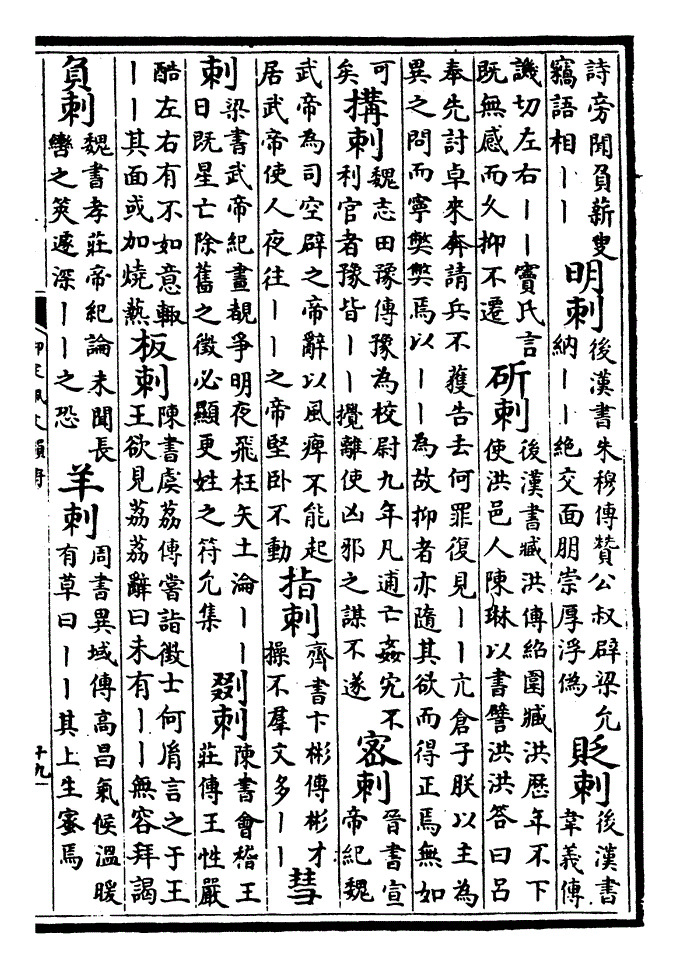 詩旁聞負薪叟
竊語相丨丨
明刺
後漢書朱穆傳贊公叔辟梁允
納丨丨絶交面朋崇厚浮偽
貶刺
後漢書
韋義傳
譏切左右丨丨竇氏言
既無感而久抑不遷
斫刺
後漢書臧洪傳紹圍臧洪歴年不下
使洪邑人陳琳以書譬洪洪答曰呂
奉先討卓來奔請兵不獲告去何罪復見丨丨亢倉子朕以主為
異之問而寧弊弊焉以丨丨為故抑者亦隨其欲而得正焉無如
可
矣
搆刺
魏志田豫傳豫為校尉九年凡逋亡姦宄不
利官者豫皆丨丨攪離使凶邪之謀不遂
密刺
晉書宣
帝紀魏
武帝為司空辟之帝辭以風痺不能起
居武帝使人夜往丨丨之帝堅卧不動
指刺
齊書卞彬傳彬才
操不羣文多丨丨
彗
刺
梁書武帝紀晝覿爭明夜飛枉矢土淪丨丨
日既星亡除舊之徵必顯更姓之符允集
剟刺
陳書會稽王
莊傳王性嚴
酷左右有不如意輙
丨丨其面或加燒爇
板刺
陳書虞荔傳嘗詣徵士何胤言之于王
王欲見荔荔辭曰未有丨丨無容拜謁
負刺
魏書孝莊帝紀論未聞長
轡之筴遽深丨丨之恐
羊刺
周書異域傳高昌氣候溫暖
有草曰丨丨其上生蜜焉